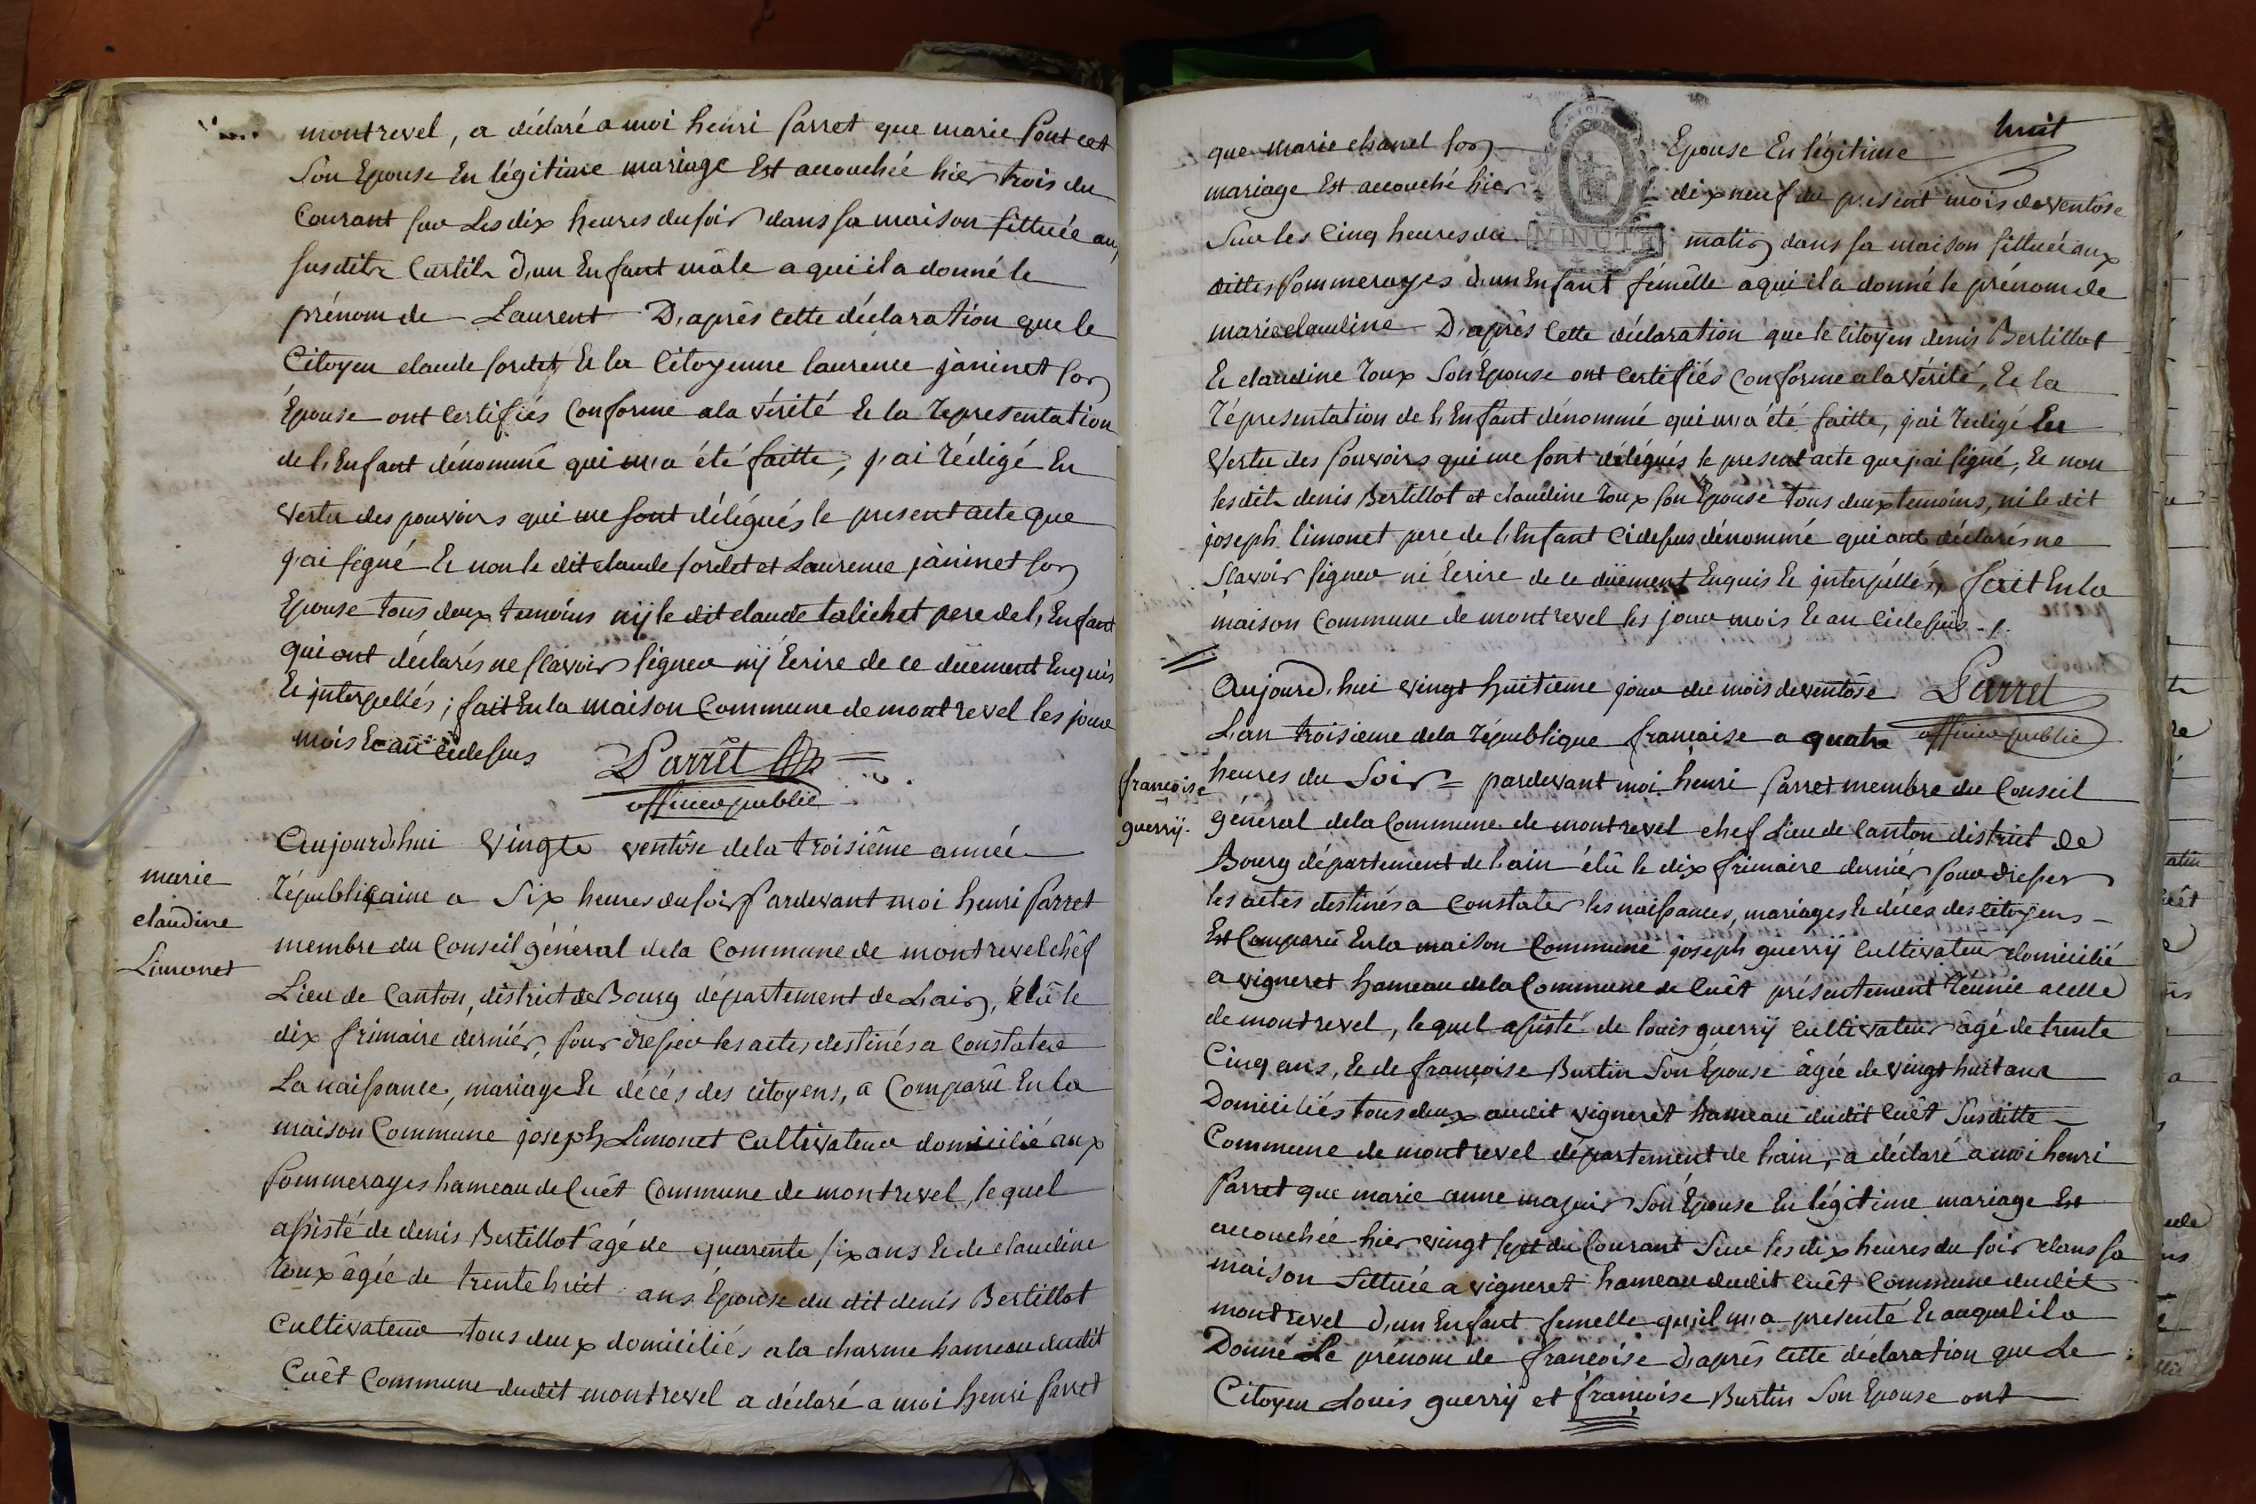 montrevel, a déclaré a moi henri parret que marie pontcet
Son Epouse En légitime mariage Est accouchée hier trois du
Courant sur Les dix heures du soir dans sa maison sittuée au
susdit Curtil d'un Enfant mâle a qui il a donné le
prénom de Laurent D'après Cette déclaration que le
Citoyen claude sordet Et la Citoyenne laurence janinet son
Epouse ont Certifiés Conforme a la vérité Et la representation
de l'Enfant dénommé qui m'a été faitte, j'ai rédigé En
vertu des pouvoirs qui me sont délégués le present acte que
j'ai signé Et non le dit claude sordet et Laurence jàninet son
Epouse tous deux temoins nÿ le dit claude talichet pere de l'Enfant
qui ont déclarés ne sçavoir signer nÿ Ecrire de ce düement Enquis
Et interpellés; fait En la maison Commune de montrevel les jour
mois Et an cidessus Parrêt
officier public
marie
claudine
Limonet
Aujourd'hui vingte ventôse de la troisième année
républiquaine a Six heures du soir Pardevant moi henri Parret
membre du Conseil général de la Commune de montrevel chêf
Lieu de Canton, district de Bourg département de L'ain, élû le
dix frimaire derniér, pour dresser les actes destinés a Constater
La naissance, mariage Et décés des citoyens, a Comparû En la
maison Commune joseph Limonet Cultivateur domicilié aux
Pommerayes hameau de Cuêt Commune de montrevel, le quel
assisté de denis Bertillot agé de quarente six ans Et de claudine
roux âgée de trente huit ans Epouse du dit denis Bertillot
Cultivateur tous deux domiciliés a la charme hameau dudit
Cuêt Commune dudit montrevel a déclaré a moi henri parret
huit
que marie chanel son Epouse En légitime
mariage Est accouché hier dix neuf du present mois de ventôse
Sur les Cinq heures du matin dans sa maison sittuée aux
MINUTE
dittes Pommerayes d'un Enfant fémêlle a qui il a donné le prénom de
marie claudine D'après Cette déclaration que le Citoyen denis Bertillot
Et claudine roux Son Epouse ont Certifiés Conforme a la vérité, Et la
réprésentation de l'Enfant dénommé qui m'a été faitte, j'ai redigé En
vertu des pouvoirs qui me sont délégués le present acte que j'ai signé, Et non
lesdits denis Bertillot et claudine roux son Epouse tous deux temoins, ni le dit
joseph limonet pere de l'Enfant Cidessus dénommé qui ont déclarés ne
sçavoir signer ni Ecrire de ce düement Enquis Et interpéllés, fait En la
maison Commune de montrevel les jour mois Et an Cidessus
Aujourd'hui vingt huitieme jour du mois de ventôse Parret
L'an troisieme de la république française a quatre officier public
françoise
guerrÿ
heures du Soir pardevant moi henri parret membre du Conseil
général de la Commune de montrevel chef Lieu de Canton district de
Bourg département de l'ain élû le dix frimaire derniér pour dresser
les actes destinés a Constater les naissances, mariages Et décés des citoyens
Est Comparû En la maison Commune joseph guerrÿ Cultivateur domicilié
a vigneret hameau de la Commune de Cuêt présentement réunie a celle
de montrevel, le quel assisté de louis guerrÿ cultivateur âgé de trente
Cinq ans, Et de françoise Burtin Son Epouse âgée de vingt huit ans
Domiciliés tous deux audit vigneret hameau dudit Cuêt Susditte
Commune de montrevel département de l'ain, a déclaré a moi henri
Parret que marie anne mazuir Son Epouse En légitime mariage Est
accouchée hier vingt sept du Courant Sur les dix heures du soir dans sa
maison Sittuée a vigneret hameau dudit Cuêt Commune dudit
montrevel d'un Enfant femelle qu'il m'a presenté Et auquel il a
Donné Le prénom de françoise D'après Cette déclaration que Le
Citoyen Louis guerrÿ et françoise Burtin Son Epouse ont